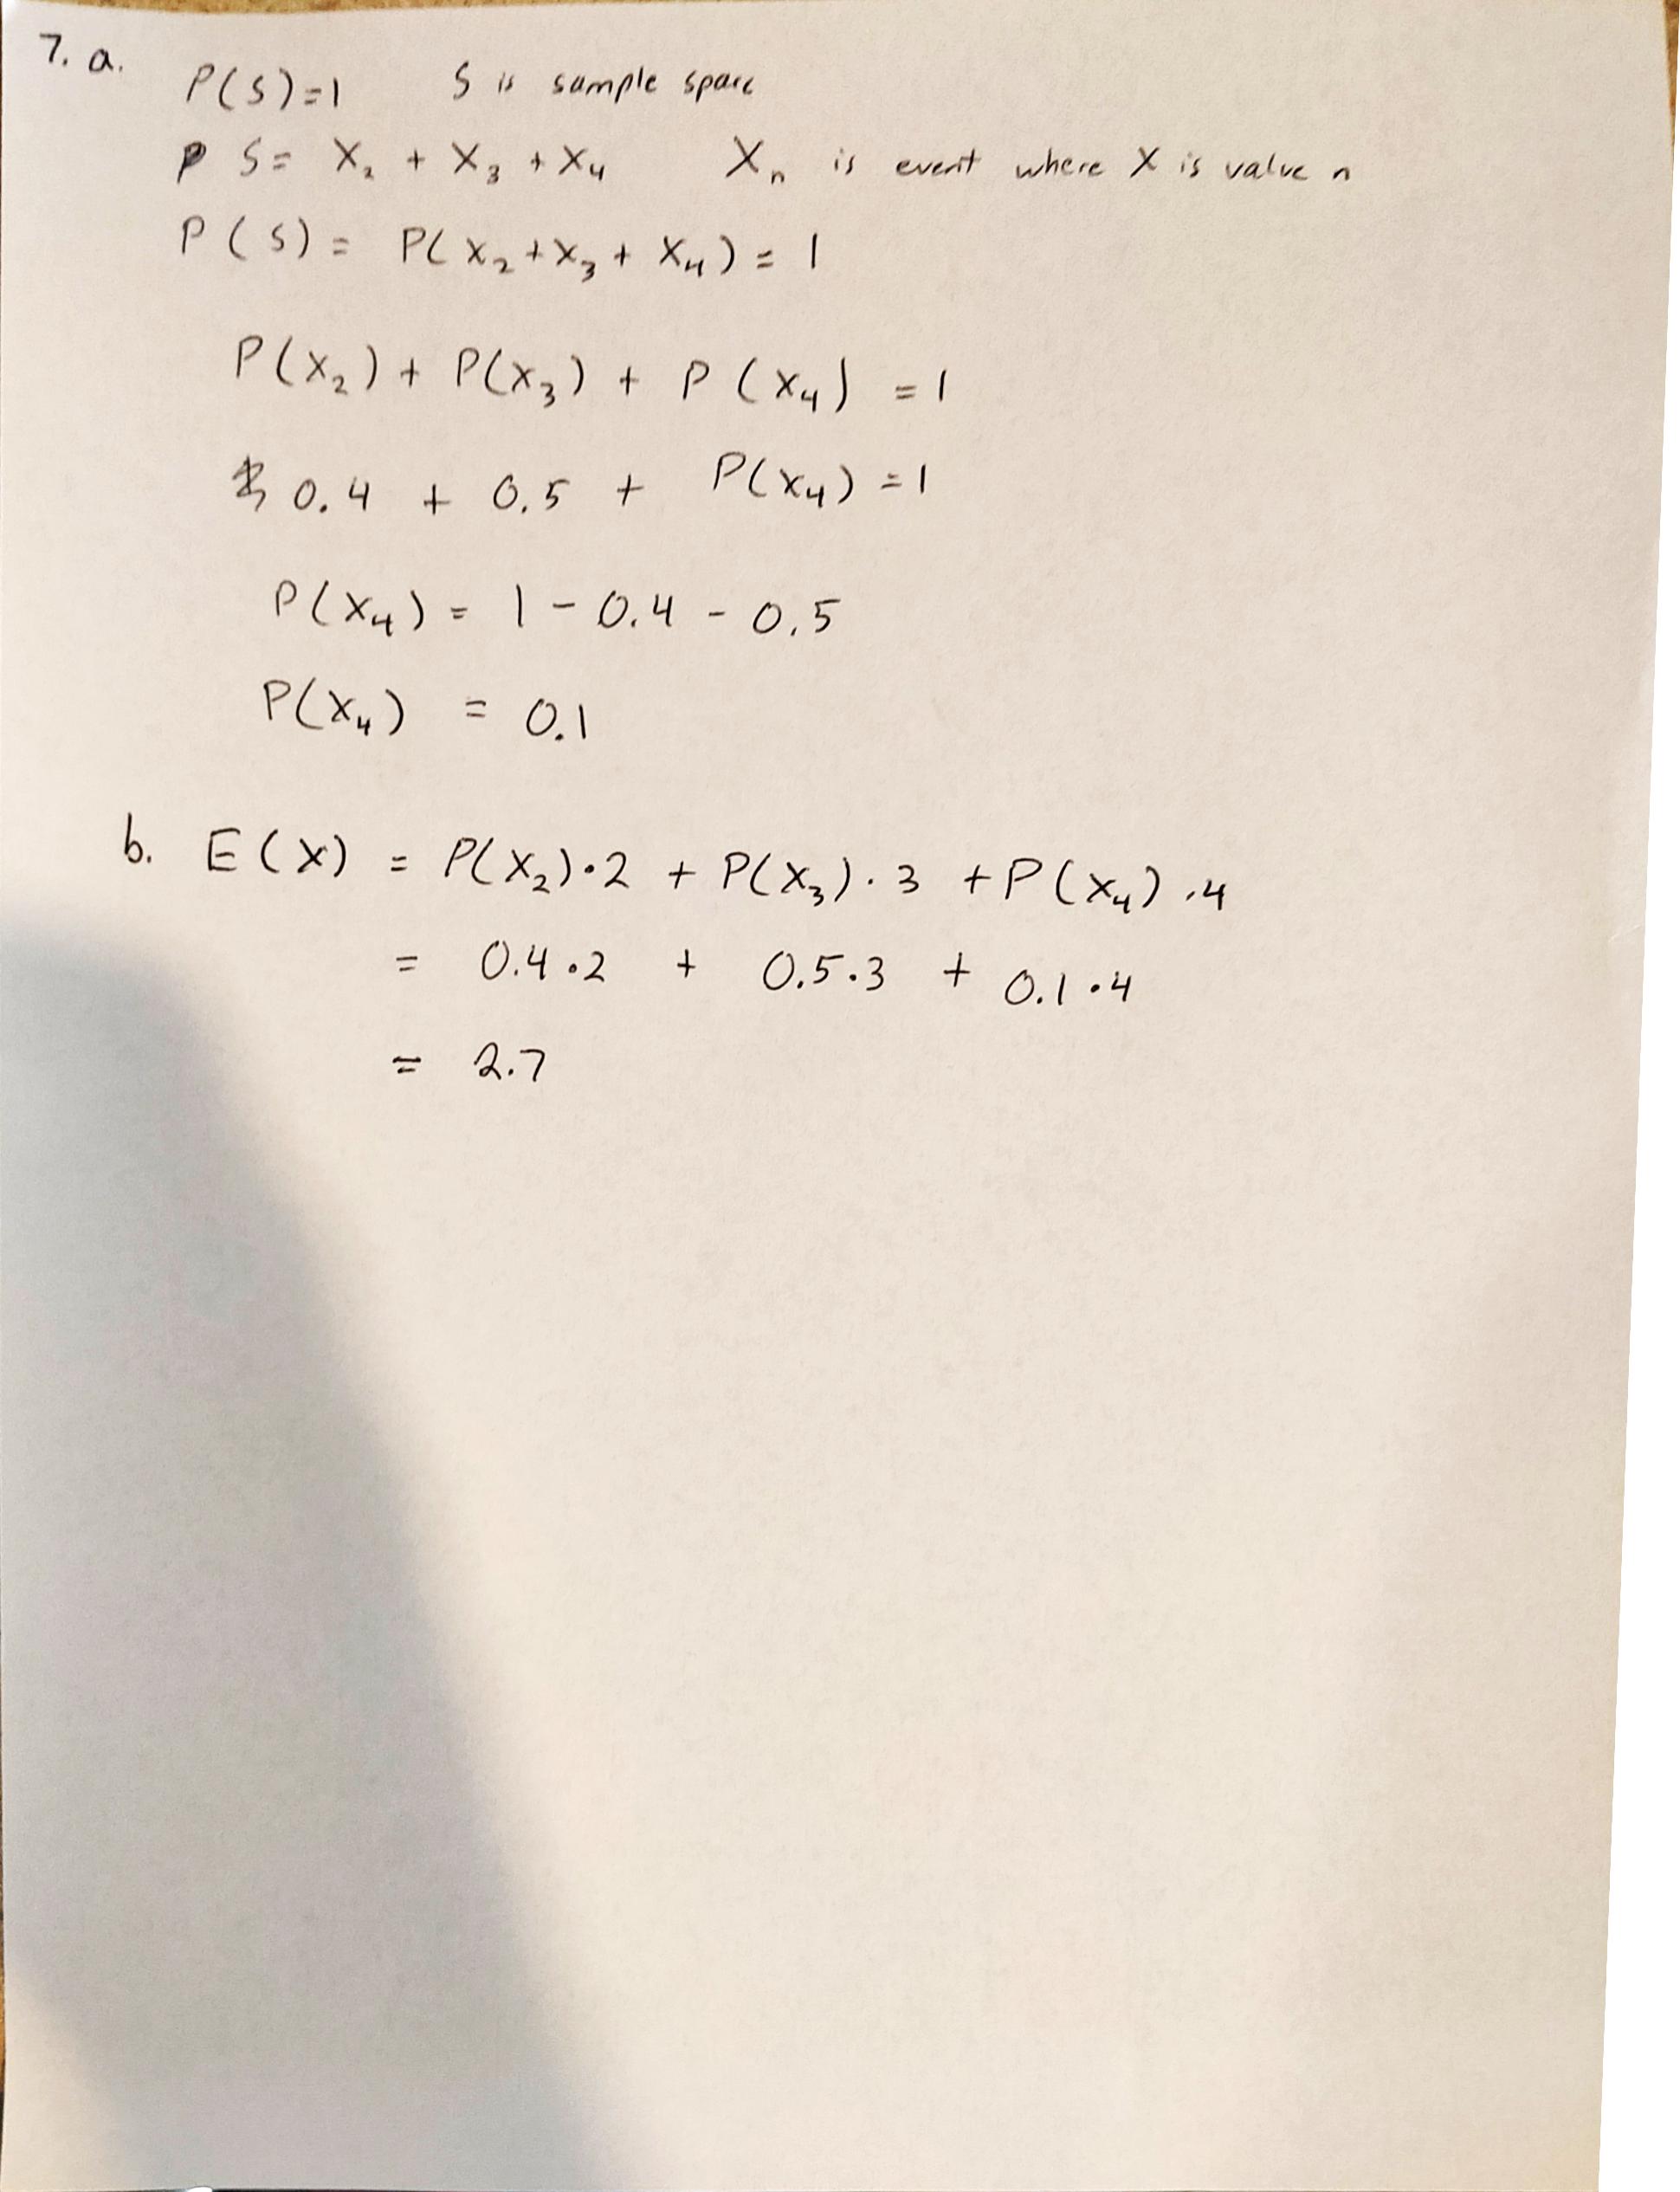 7. a.
P(S)=1 S is sample space
S = X₂ + X₃ + X₄ Xₙ is event where X is value n
P(S) = P(X₂+X₃+X₄) = 1
P(X₂) + P(X₃) + P(X₄) = 1
0.4 + 0.5 + P(X₄) = 1
P(X₄) = 1 - 0.4 - 0.5
P(X₄) = 0.1
b. E(X) = P(X₂)·2 + P(X₃)·3 + P(X₄)·4
= 0.4·2 + 0.5·3 + 0.1·4
= 2.7